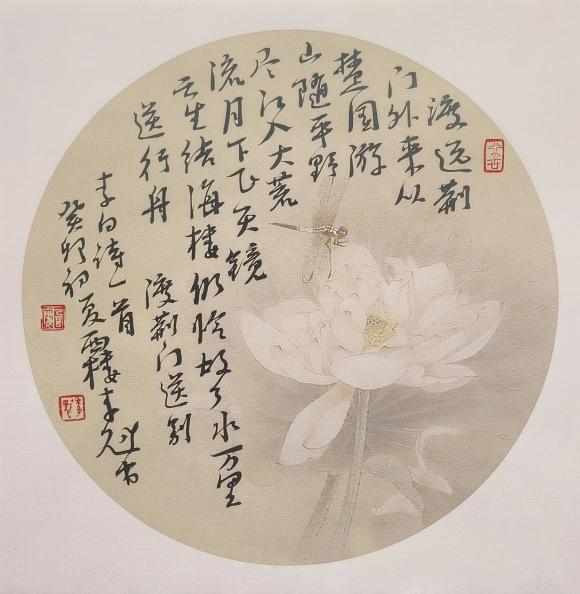 渡远荆
门外来从
楚国游
山随平野
尽江入大荒
流月下飞天镜
云生结海楼仍怜故乡水万里
送行舟 渡荆门送别
李白诗一首
癸卯初夏 李 书